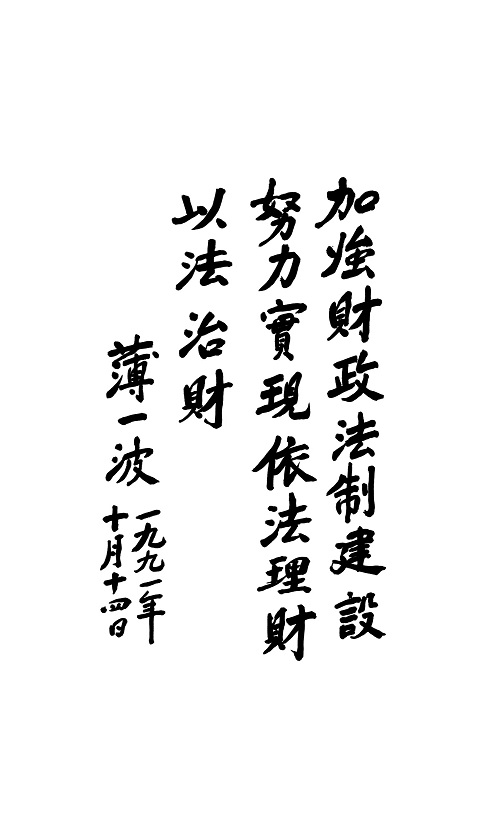 加強財政法制建設
努力實現依法理財
以法治財
薄一波
一九九一年
十月十四日